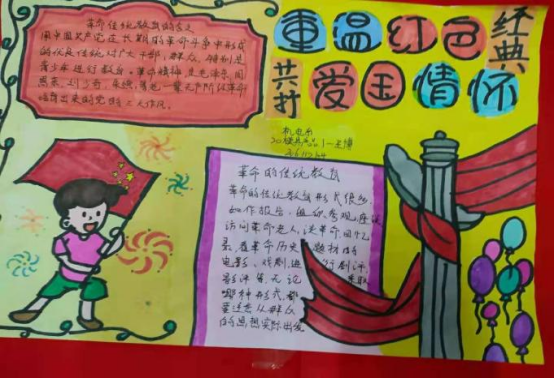 重温红色经典
共抒爱国情怀
革命传统教育的含义
用中国共产党在长期的革命斗争中形成
的优良传统对广大干部,群众,特别是
青少年进行教育。革命精神,是毛泽东,周
恩来,刘少奇,朱德,等老一辈无产阶级革命
培育出来的党的三大作风。
机电系
革命的传统教育
革命的传统教育形式很多
如作报告,组织参观,座谈
访问革命老人,读革命回忆
录,看革命历史题材的
电影,戏剧,进行剧评,
影评等,无论采取
哪种形式,都
要注意从群众
的思想实际出发